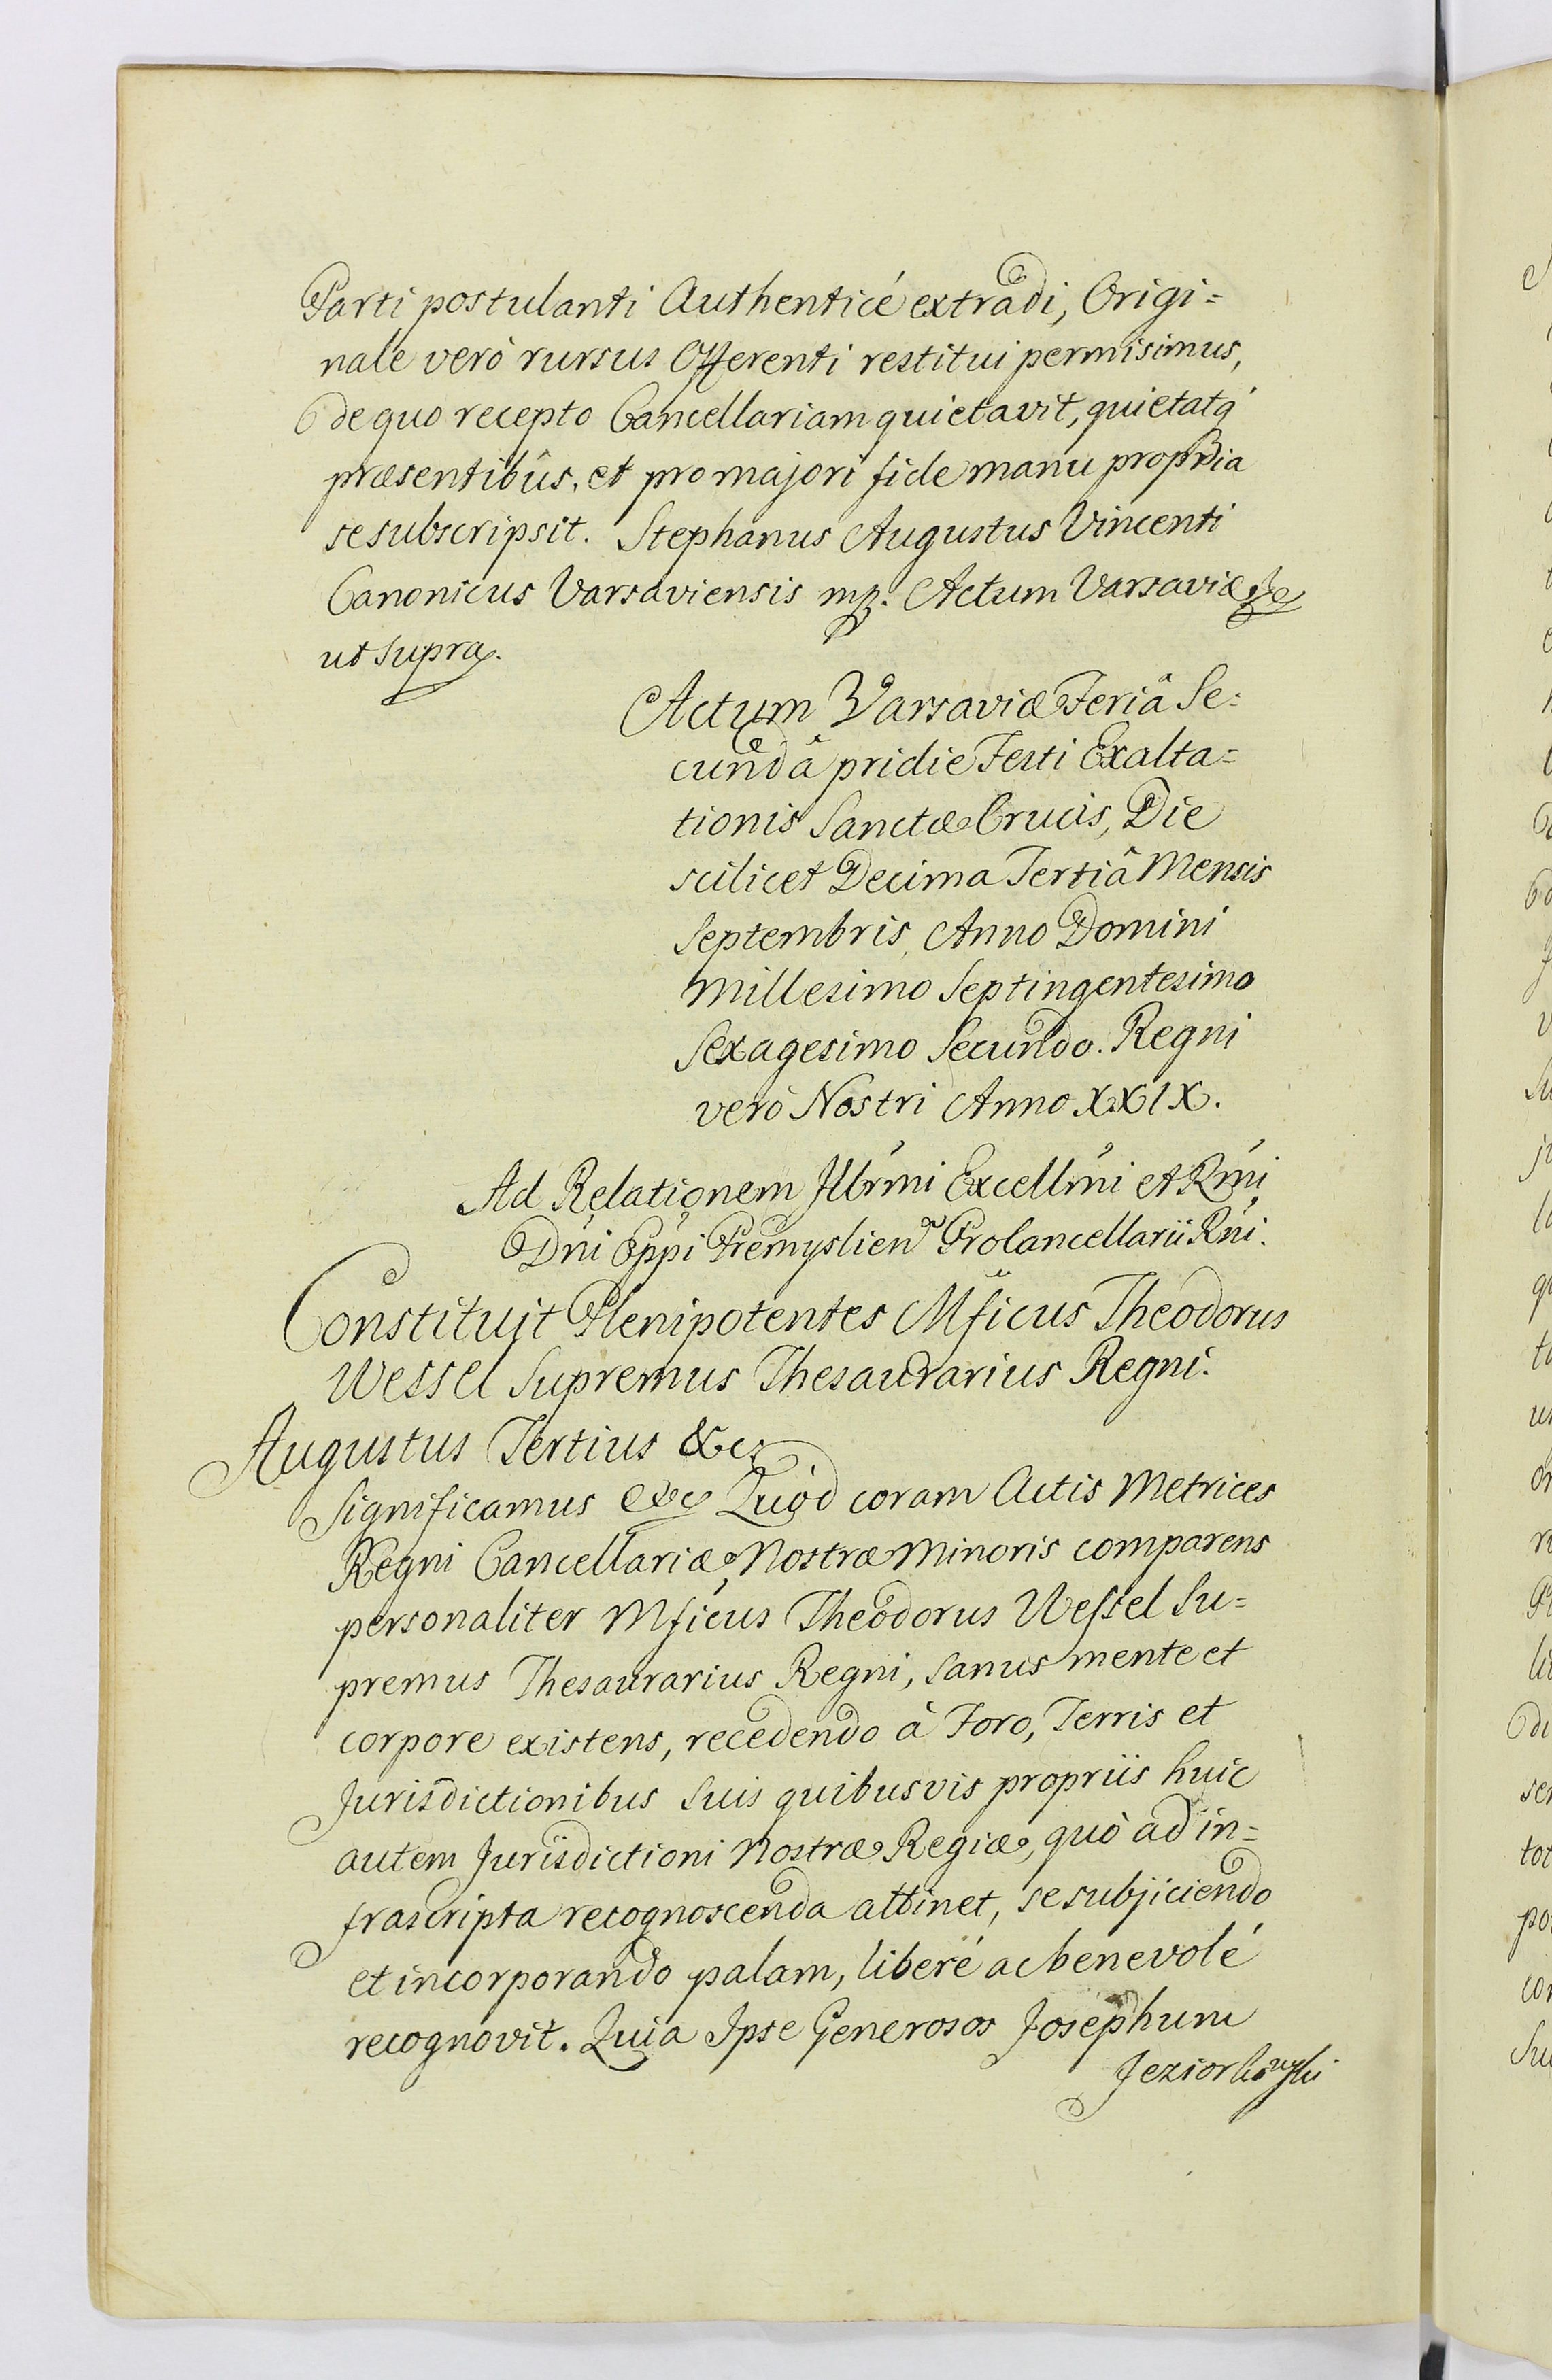 Parti postulanti Authenticé extradi, Origi=
nale verò rursus Offerenti restitui permisimus,
de quo recepto Cancellariam quietavit, quietatq́
præsentibûs, et pro majori fide manu propria
se subscripsit. Stephanus Augustus Vincenti
Canonicus Varsaviensis mp. Actum Varsaviæ &c
ut supra.
Actum Varsaviæ Feriâ Se=
cundâ pridie Festi Exalta=
tionis Sanctæ Crucis, Die
scilicet Decima Tertiâ Mensis
Septembris, Anno Domini
Millesimo Septingentesimo
Sexagesimo Secundo. Regni
verò Nostri Anno XXIX.
Ad Relationem Illrmi Excellmi et Rmi
Dni Eppi Premyslien Procancellarii Rni.
Constituit Plenipotentes Mficus Theodorus
Wessel Supremus Thesaurarius Regni.
Augustus Tertius &c
Significamus &c Quòd coram Actis Metrices
Regni Cancellariæ Nostræ Minoris comparens
personaliter Mficus Theodorus Wessel Su=
premus Thesaurarius Regni, sanus mente et
corpore existens, recedendo à Foro, Terris et
Jurisdictionibus suis quibusvis propriis huic
autem Jurisdictioni Nostræ Regiæ, quò ad in=
frascripta recognoscenda attinet, se subjiciendo
et incorporando palam, liberé ac benevolé
recognovit. Quia Ipse Generosos Josephum
Jeziorkowski